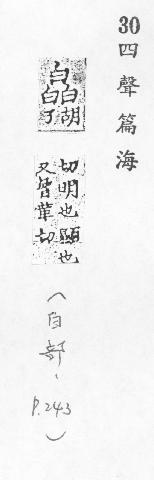 30四聲篇海
皛 胡了
切明也顯也
又普革切
(白部、P.243)